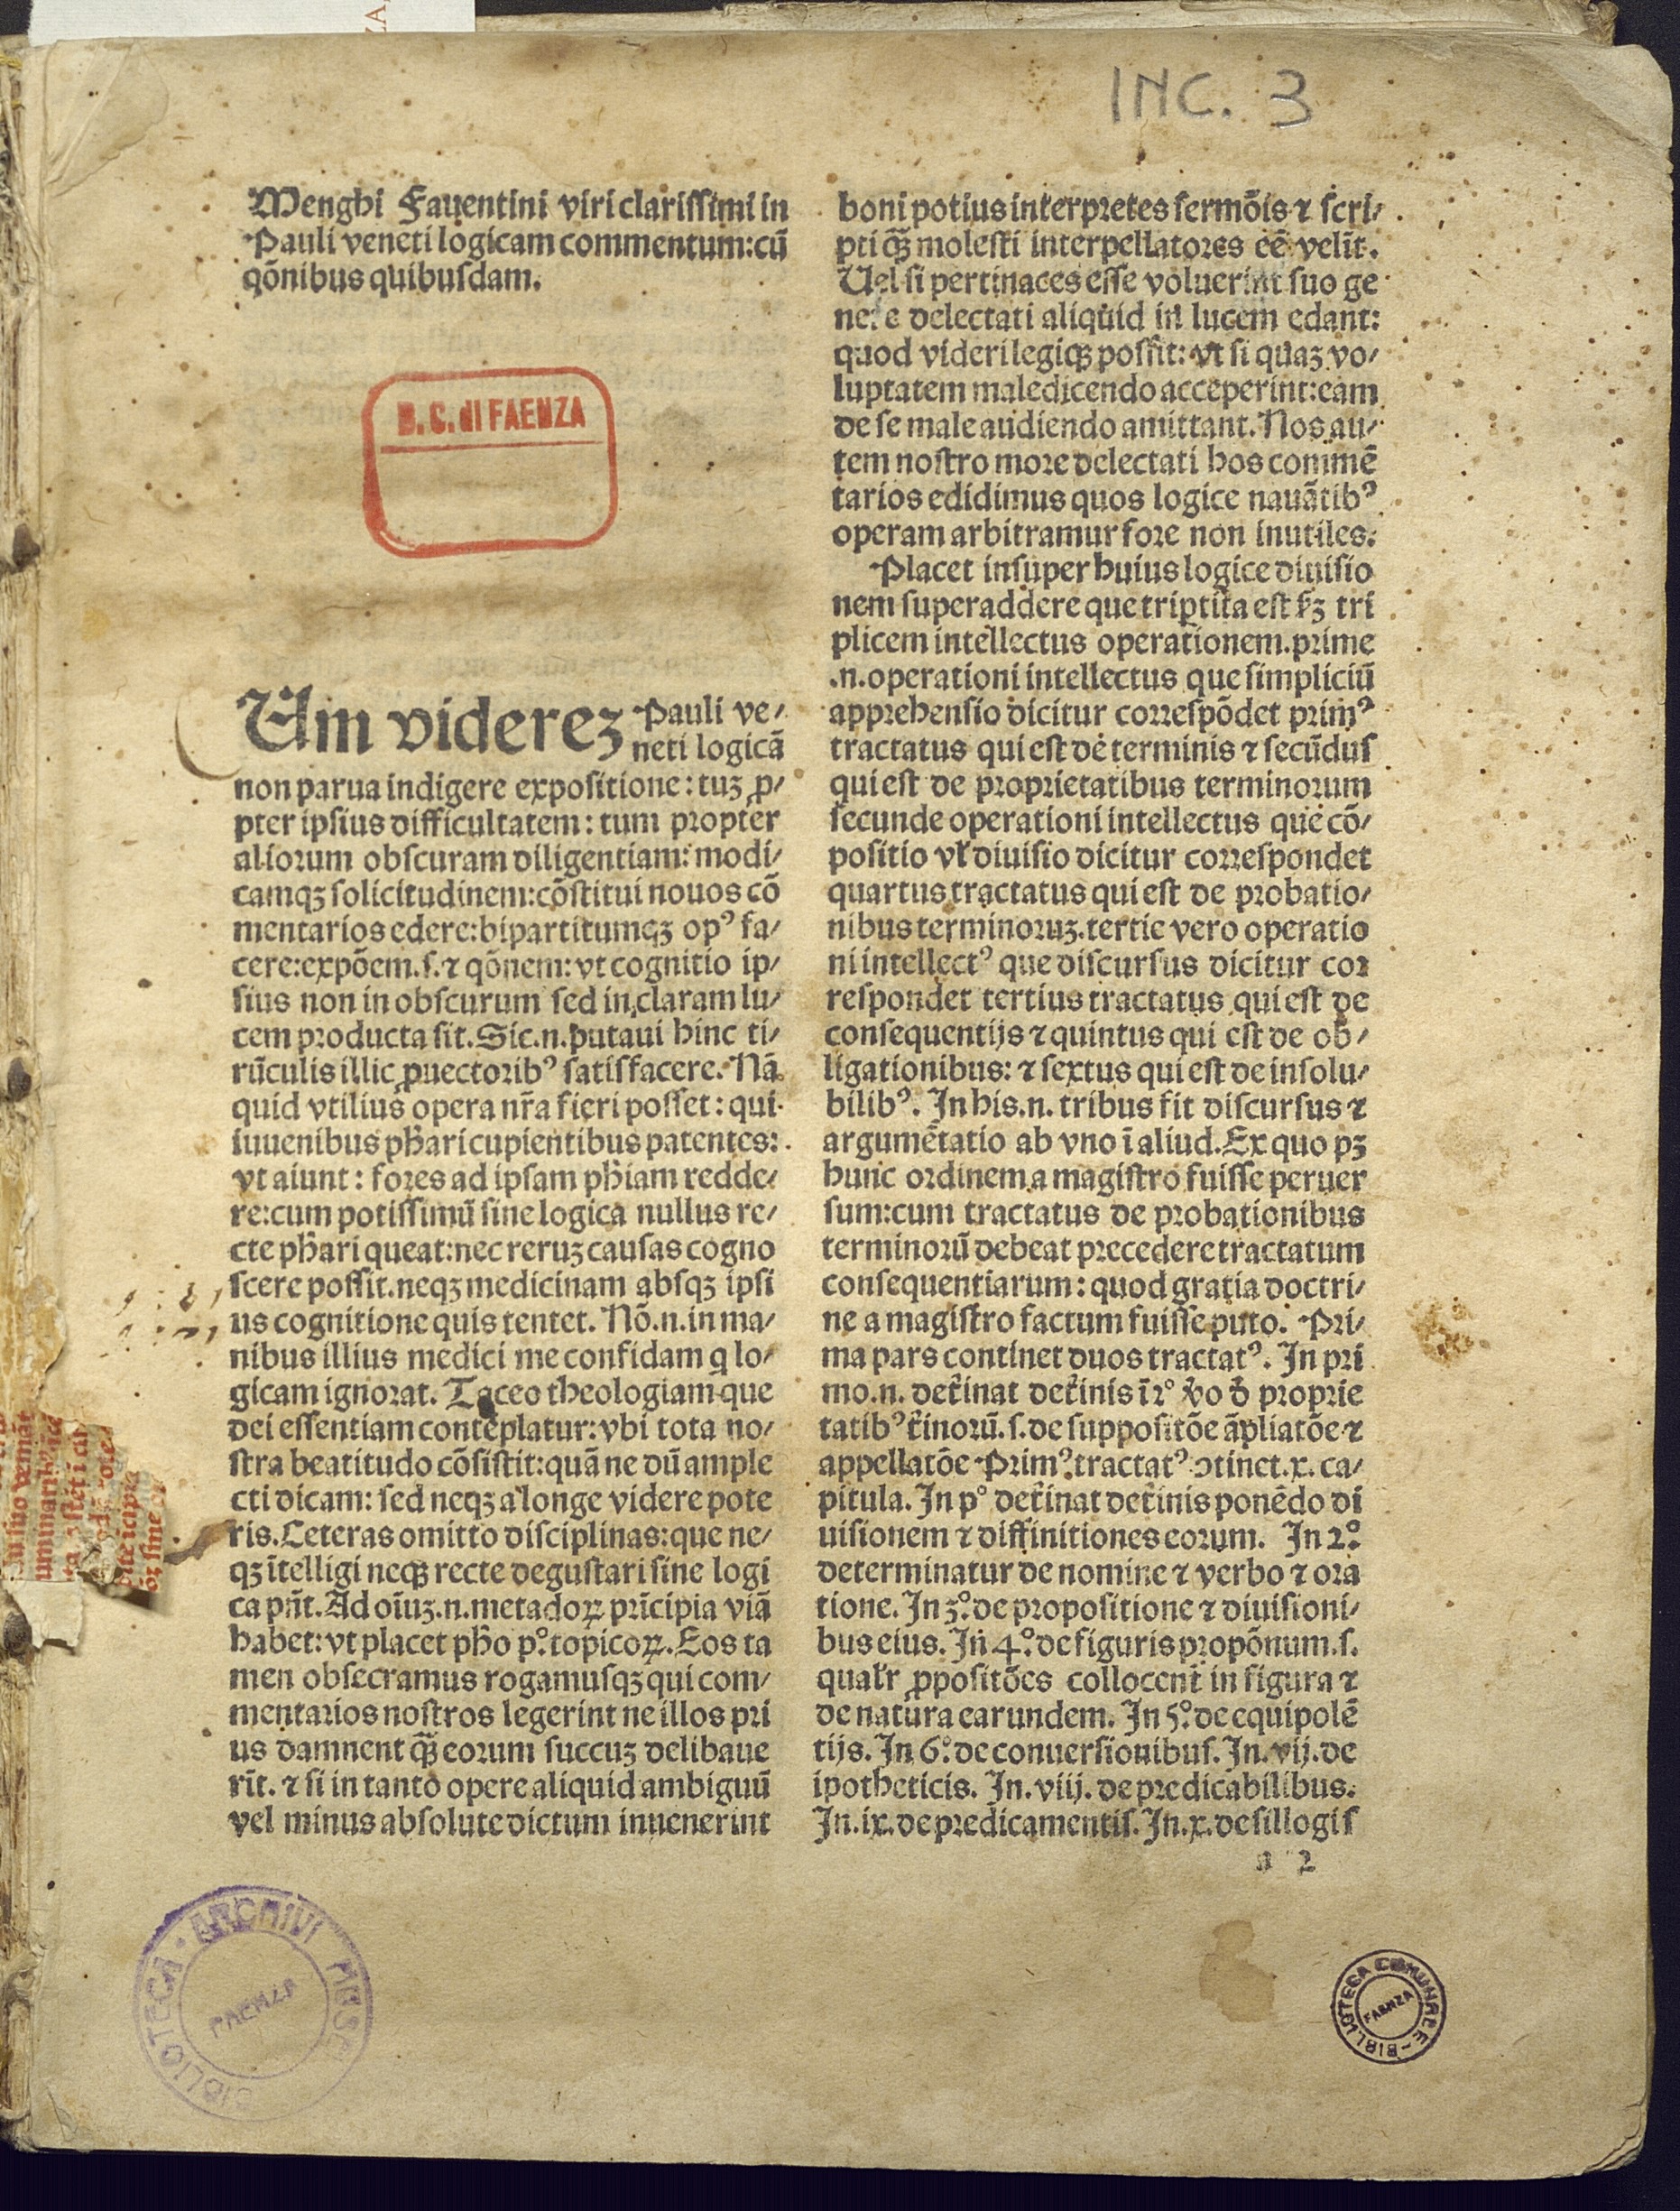 INC. 3
Menghi Faventini viri clarissimi in
Pauli veneti logicam commentum:cū
qōnibus quibusdam.
B. C. di FAENZA
Um viderez Pauli ve/
neti logicā
non parua indigere expositione: tuꝫ ꝓ/
pter ipsius difficultatem: tum propter
aliorum obscuram diligentiam: modi/
camqꝫ solicitudinem:cōstitui nouos cō
mentarios edere:bipartitumqꝫ opꝰ fa/
cere:expōem.s.⁊ qōnem: vt cognitio ip/
sius non in obscurum sed in claram lu/
cem producta sit. Sic.n.putaui hinc ti/
rūculis illic ꝓuectoribꝰ satisfacere. Nā
quid vtilius opera nr̄a fieri posset: qui
iuuenibus ph̄ari cupientibus patentes:
vt aiunt: fores ad ipsam ph̄iam redde/
re:cum potissimū sine logica nullus re/
cte ph̄ari queat:nec reruꝫ causas cogno
scere possit.neqꝫ medicinam absqꝫ ipsi
us cognitione quis tentet. Nō.n.in ma/
nibus illius medici me confidam q lo/
gicam ignorat. Taceo theologiam que
dei essentiam contēplatur: vbi tota no/
stra beatitudo cōsistit:quā ne dū ample
cti dicam: sed neqꝫ a longe videre pote
ris. Ceteras omitto disciplinas:que ne/
qꝫ ītelligi neqꝫ recte degustari sine logi
ca pn̄t. Ad oīuꝫ.n.metadoꝝ prīcipia viā
habet: vt placet ph̄o p°.topicoꝝ. Eos ta
men obsecramus rogamusqꝫ qui com/
mentarios nostros legerint ne illos pri
us damnent qꝫ̄ eorum succuꝫ delibaue
rīt. ⁊ si in tanto opere aliquid ambiguū
vel minus absolute dictum inuenerint
boni potius interpretes sermōis ⁊ scri/
pti qꝫ̄ molesti interpellatores eē velīt.
Uel si pertinaces esse voluerint suo ge
nere delectati aliquid in lucem edant:
quod videri legiqꝫ possit: vt si quaꝫ vo/
luptatem maledicendo acceperint:eam
de se male audiendo amittant. Nos au/
tem nostro more delectati hos commē
tarios edidimus quos logice nauātibꝰ
operam arbitramur fore non inutiles.
Placet insuper huius logice diuisio
nem superaddere que triptita est ẜꝫ tri
plicem intellectus operationem.prime
.n.operationi intellectus que simpliciū
apprehensio dicitur correspōdet primꝰ
tractatus qui est de terminis ⁊ secūdus
qui est de proprietatibus terminorum
secunde operationi intellectus que cō/
positio vl̄ diuisio dicitur correspondet
quartus tractatus qui est de probatio/
nibus terminoruꝫ.tertie vero operatio
ni intellectꝰ que discursus dicitur cor
respondet tertius tractatus qui est de
consequentijs ⁊ quintus qui est de ob/
ligationibus: ⁊ sextus qui est de insolu/
bilibꝰ. In his.n. tribus fit discursus ⁊
argumētatio ab vno ī aliud. Ex quo pꝫ
hunc ordinem a magistro fuisse peruer
sum:cum tractatus de probationibus
terminorū debeat precedere tractatum
consequentiarum: quod gratia doctri/
ne a magistro factum fuisse puto. Pri/
ma pars continet duos tractatꝰ. In pri
mo.n. det̄inat det̄inis ī 2° v̄o đ proprie
tatibꝰ t̄inorū.s.de suppositōe āpliatōe ⁊
appellatōe Primꝰ.tractatꝰ ꝯtinet.x. ca/
pitula. In p° det̄inat det̄inis ponēdo di
uisionem ⁊ diffinitiones eorum. In 2°.
determinatur de nomine ⁊ verbo ⁊ ora
tione. In 3°.de propositione ⁊ diuisioni/
bus eius. In 4°.de figuris propōnum.s.
qualr̄ ꝓpositōes collocent̄ in figura ⁊
de natura earundem. In 5°.de equipolē
tijs. In 6°.de conuersionibus. In.vij.de
ipotheticis. In.viij. de predicabilibus.
In.ix.de predicamentis. In.x.de sillogis
a 2
BIBLIOTECA · ARCHIVI MUSEI
FAENZA
BIBLIOTECA COMUNALE
FAENZA